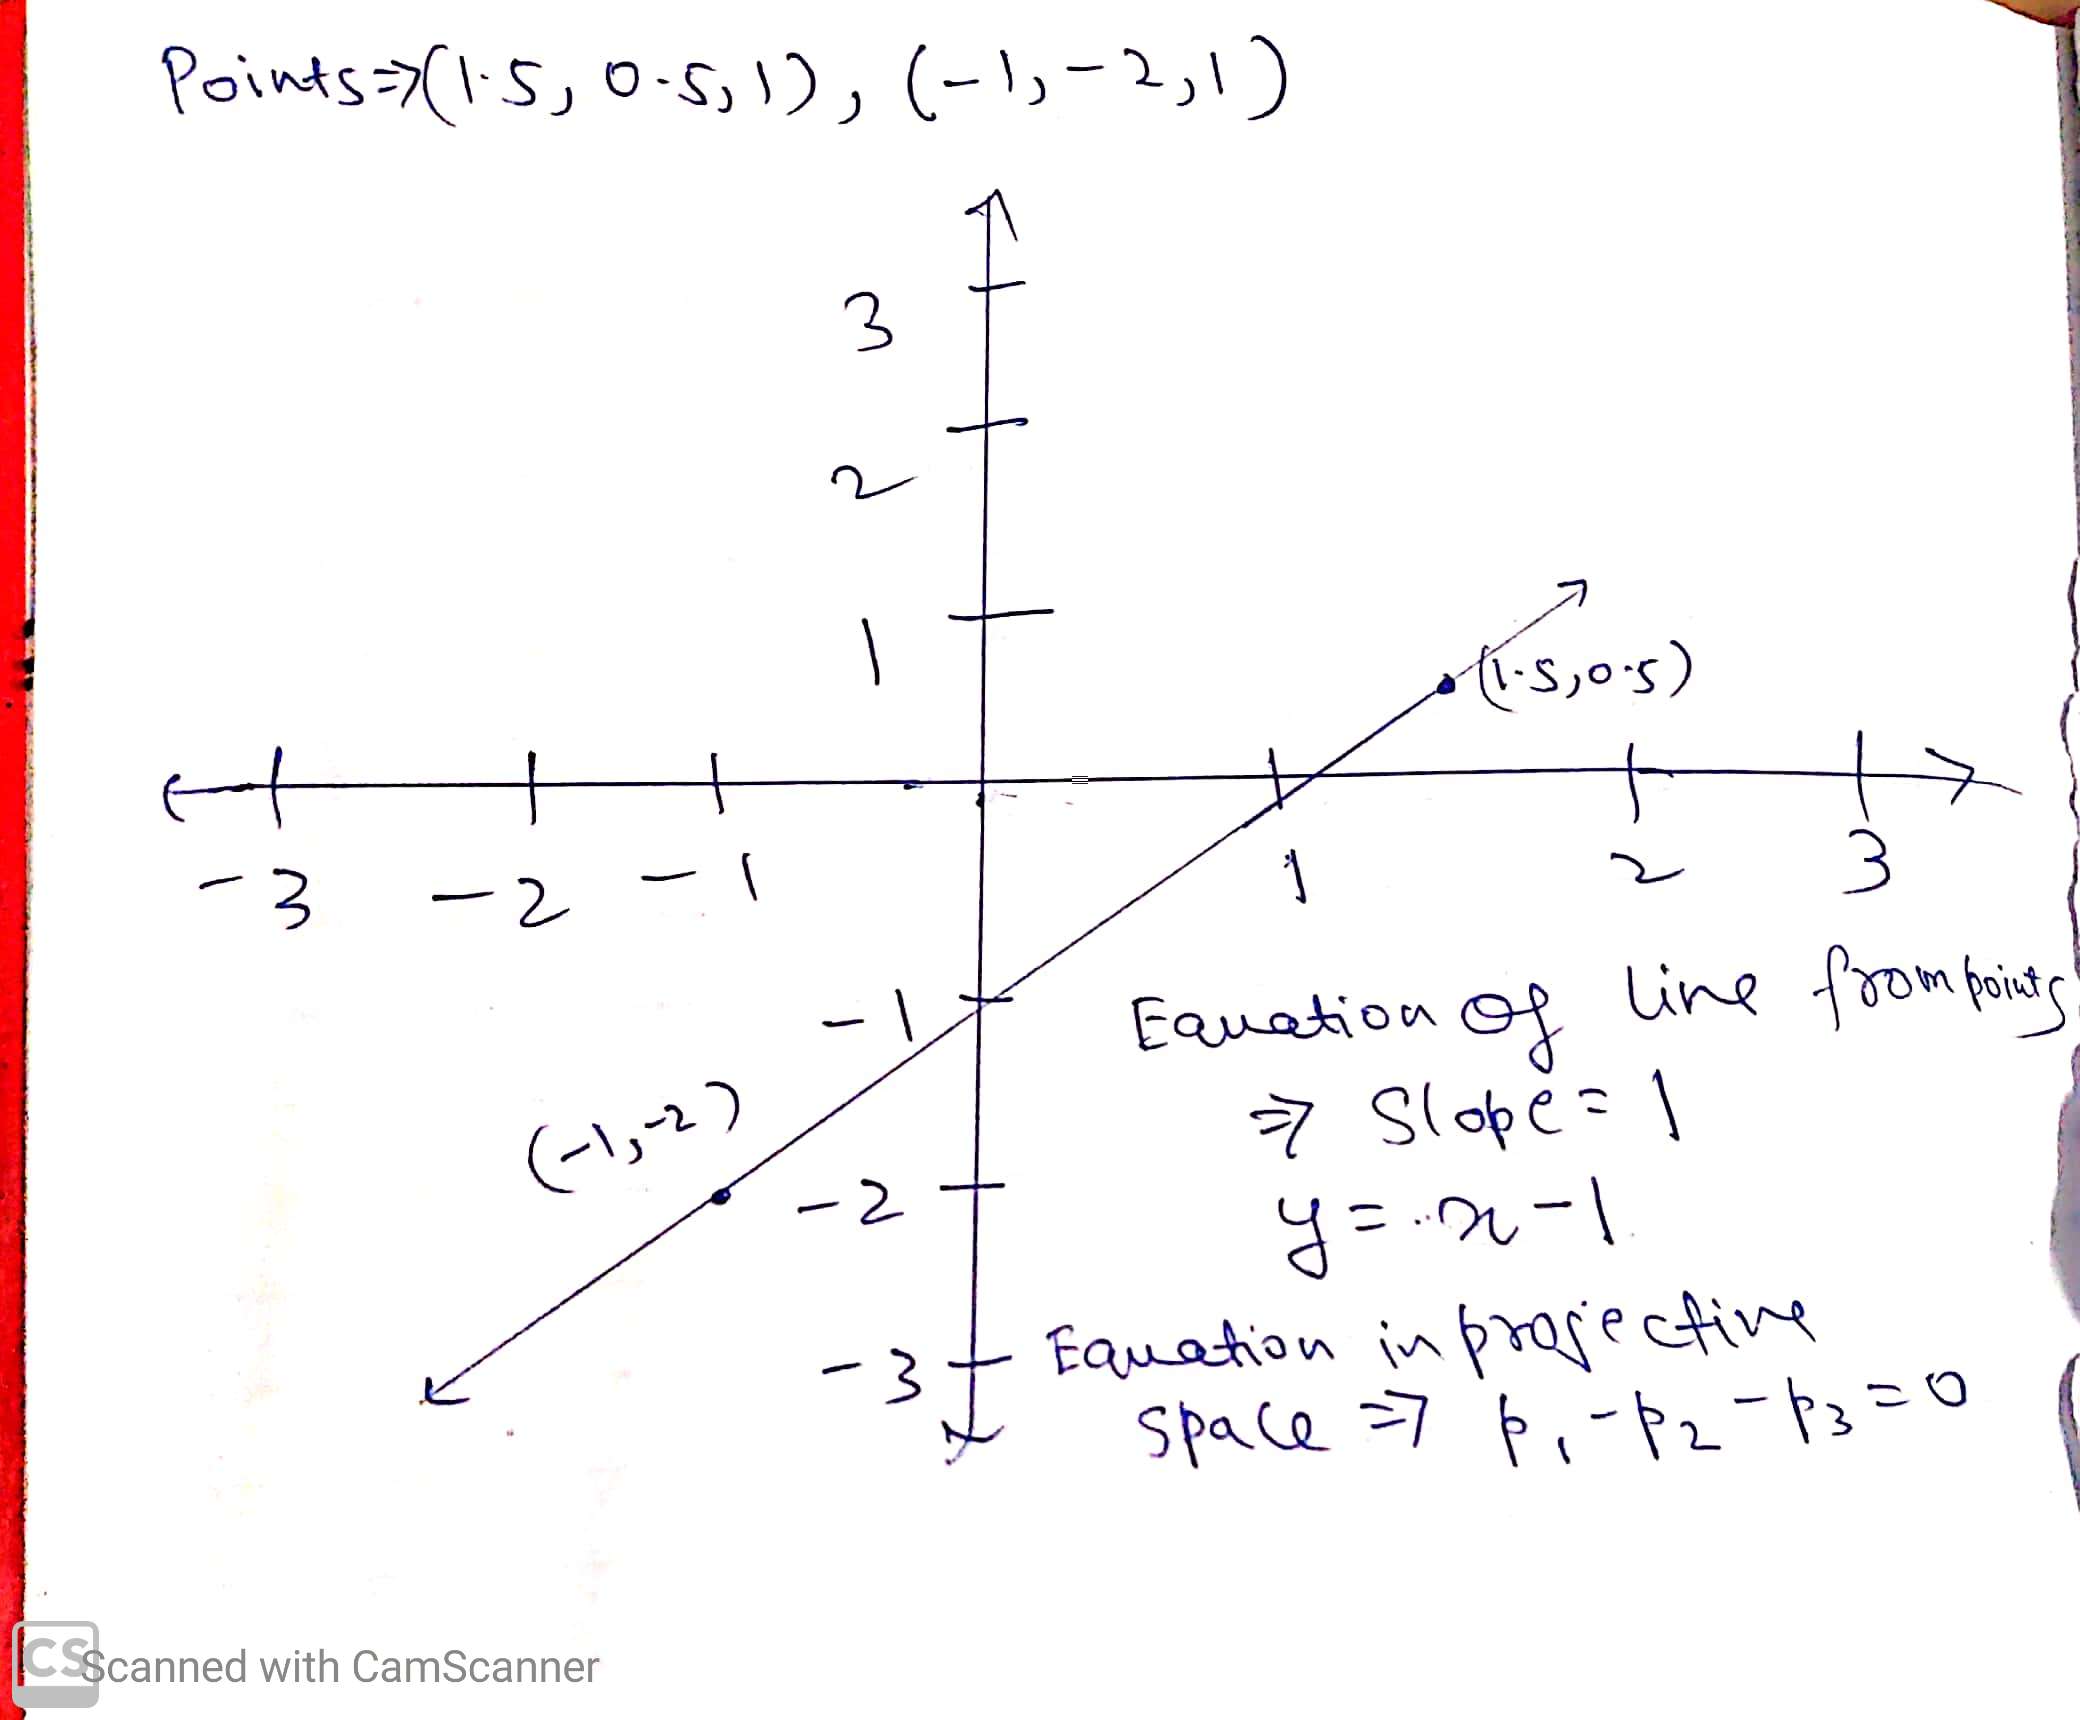 Points⇒(1.5, 0.5, 1), (-1, -2, 1)
3
2
1
(1.5, 0.5)
-3 -2 -1 1 2 3
-1
Equation of line from points
(-1, -2)
⇒ Slope = 1
-2
y = x - 1
-3
Equation in projective
space ⇒ p₁ - p₂ - p₃ = 0
CS Scanned with CamScanner